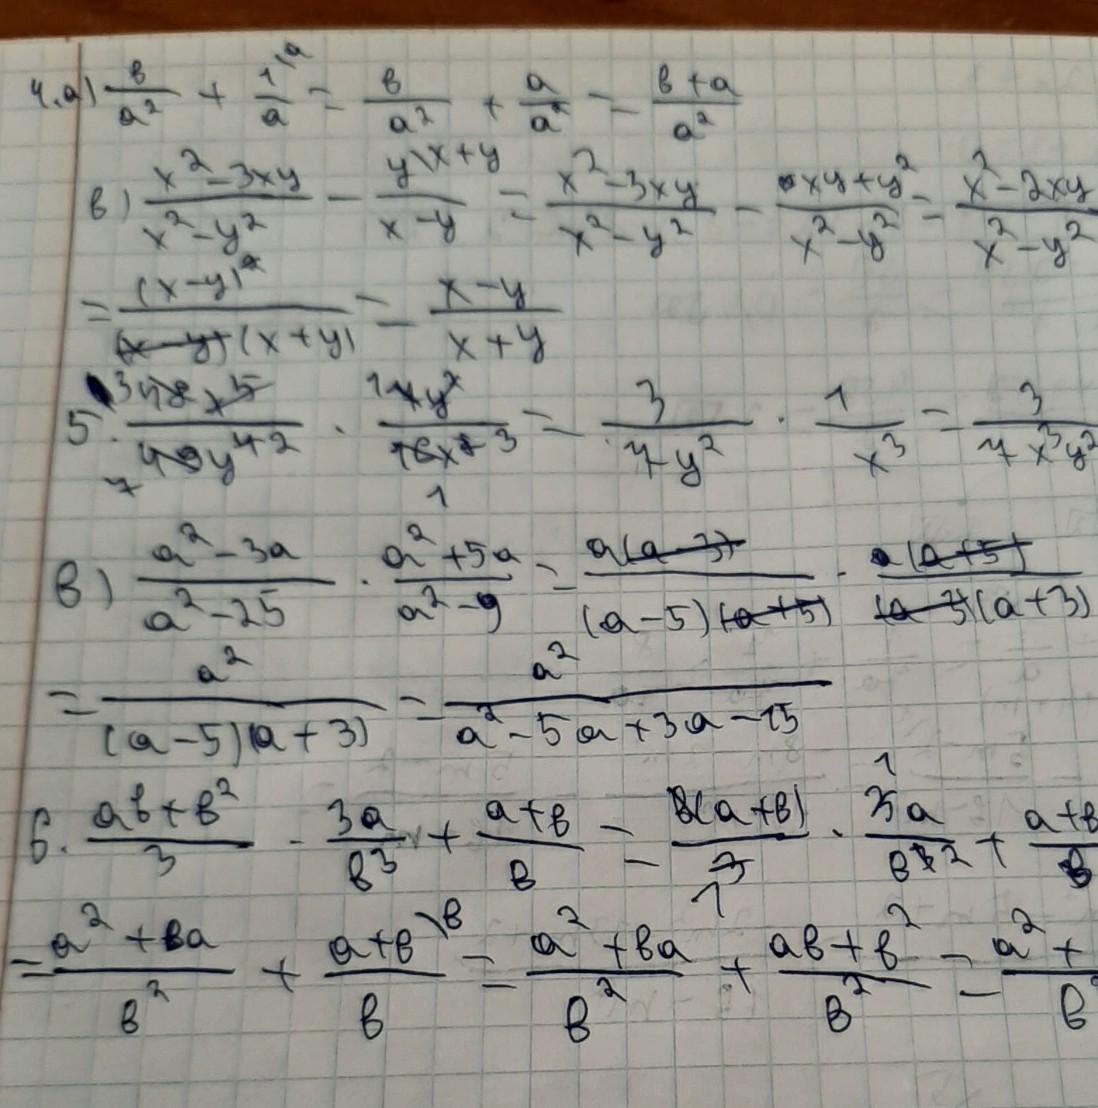 4.a) в/a² + 1\a/a = в/a² + a/a² = в+a/a²
в) x²-3xy/x²-y² - y\x+y/x-y = x²-3xy/x²-y² - xy+y²/x²-y² = x²-2xy/x²-y²
= (x-y)²/(x-y)(x+y) = x-y/x+y
5. 48x⁵/49y⁴ · 7y²/16x⁸ = 3/7y² · 1/x³ = 3/7x³y²
в) a²-3a/a²-25 · a²+5a/a²-9 = a(a-3)/(a-5)(a+5) · a(a+5)/(a-3)(a+3)
= a²/(a-5)(a+3) = a²/a²-5a+3a-15
6. aв+в²/3 · 3a/в³ + a+в/в = в(a+в)/3 · 3a/в³ + a+в/в
= a²+вa/в² + a+в\в/в = a²+вa/в² + aв+в²/в² = a²+/в